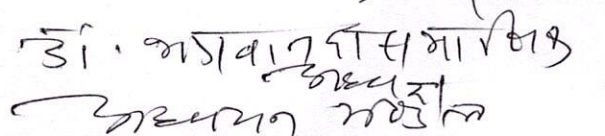 डॉ. भगवानदास माहिक
अध्यक्ष
अध्ययन मण्डल